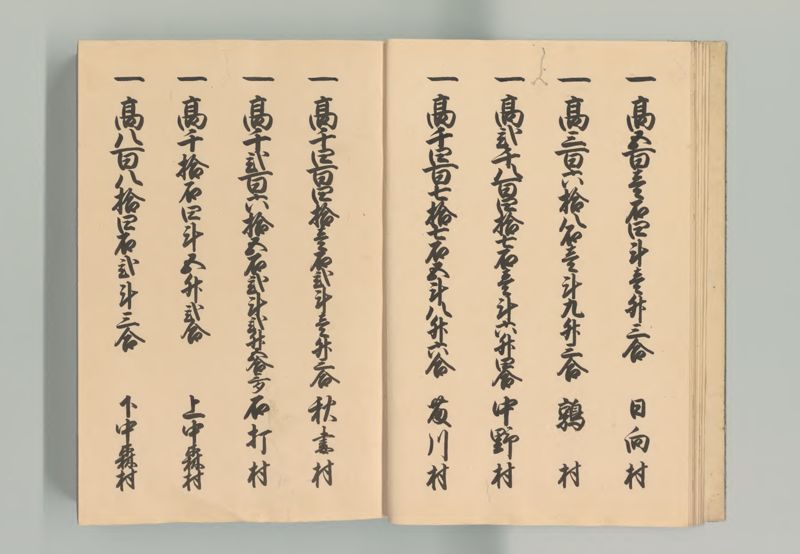 一 高五百壱石四斗壱升三合 日向村
一 高三百六拾八石壱斗九升三合 鶉村
一 高弐千八百四拾七石壱斗六升四合 中野村
一 高千四百七拾七石五斗八升六合 藤川村
一 高千四百四拾壱石弐斗壱升三合 秋妻村
一 高千弐百六拾五石弐斗弐升 石打村
一 高千拾石四斗五升弐合 上中森村
一 高八百八拾四石弐斗三合 下中森村